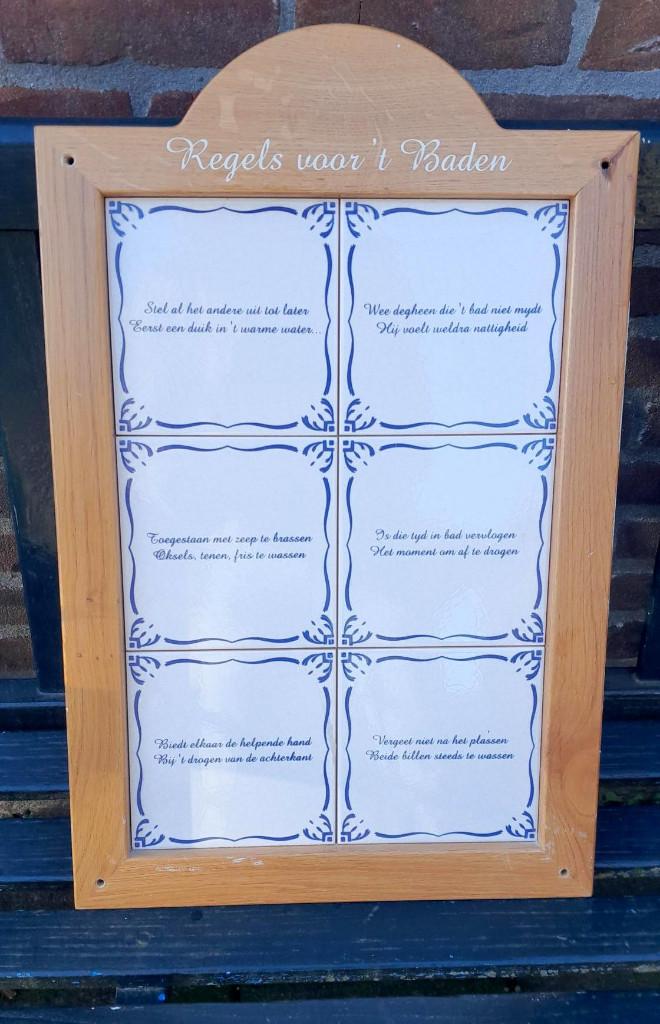 Regels voor 't Baden
Stel al het andere uit tot later
Eerst een duik in 't warme water...
Wee degheen die 't bad niet mydt
Hij voelt weldra nattigheid
Toegestaan met zeep te brassen
Oksels, tenen, fris te wassen
Is die tyd in bad vervlogen
Het moment om af te drogen
Biedt elkaar de helpende hand
Bij 't drogen van de achterkant
Vergeet niet na het plassen
Beide billen steeds te wassen